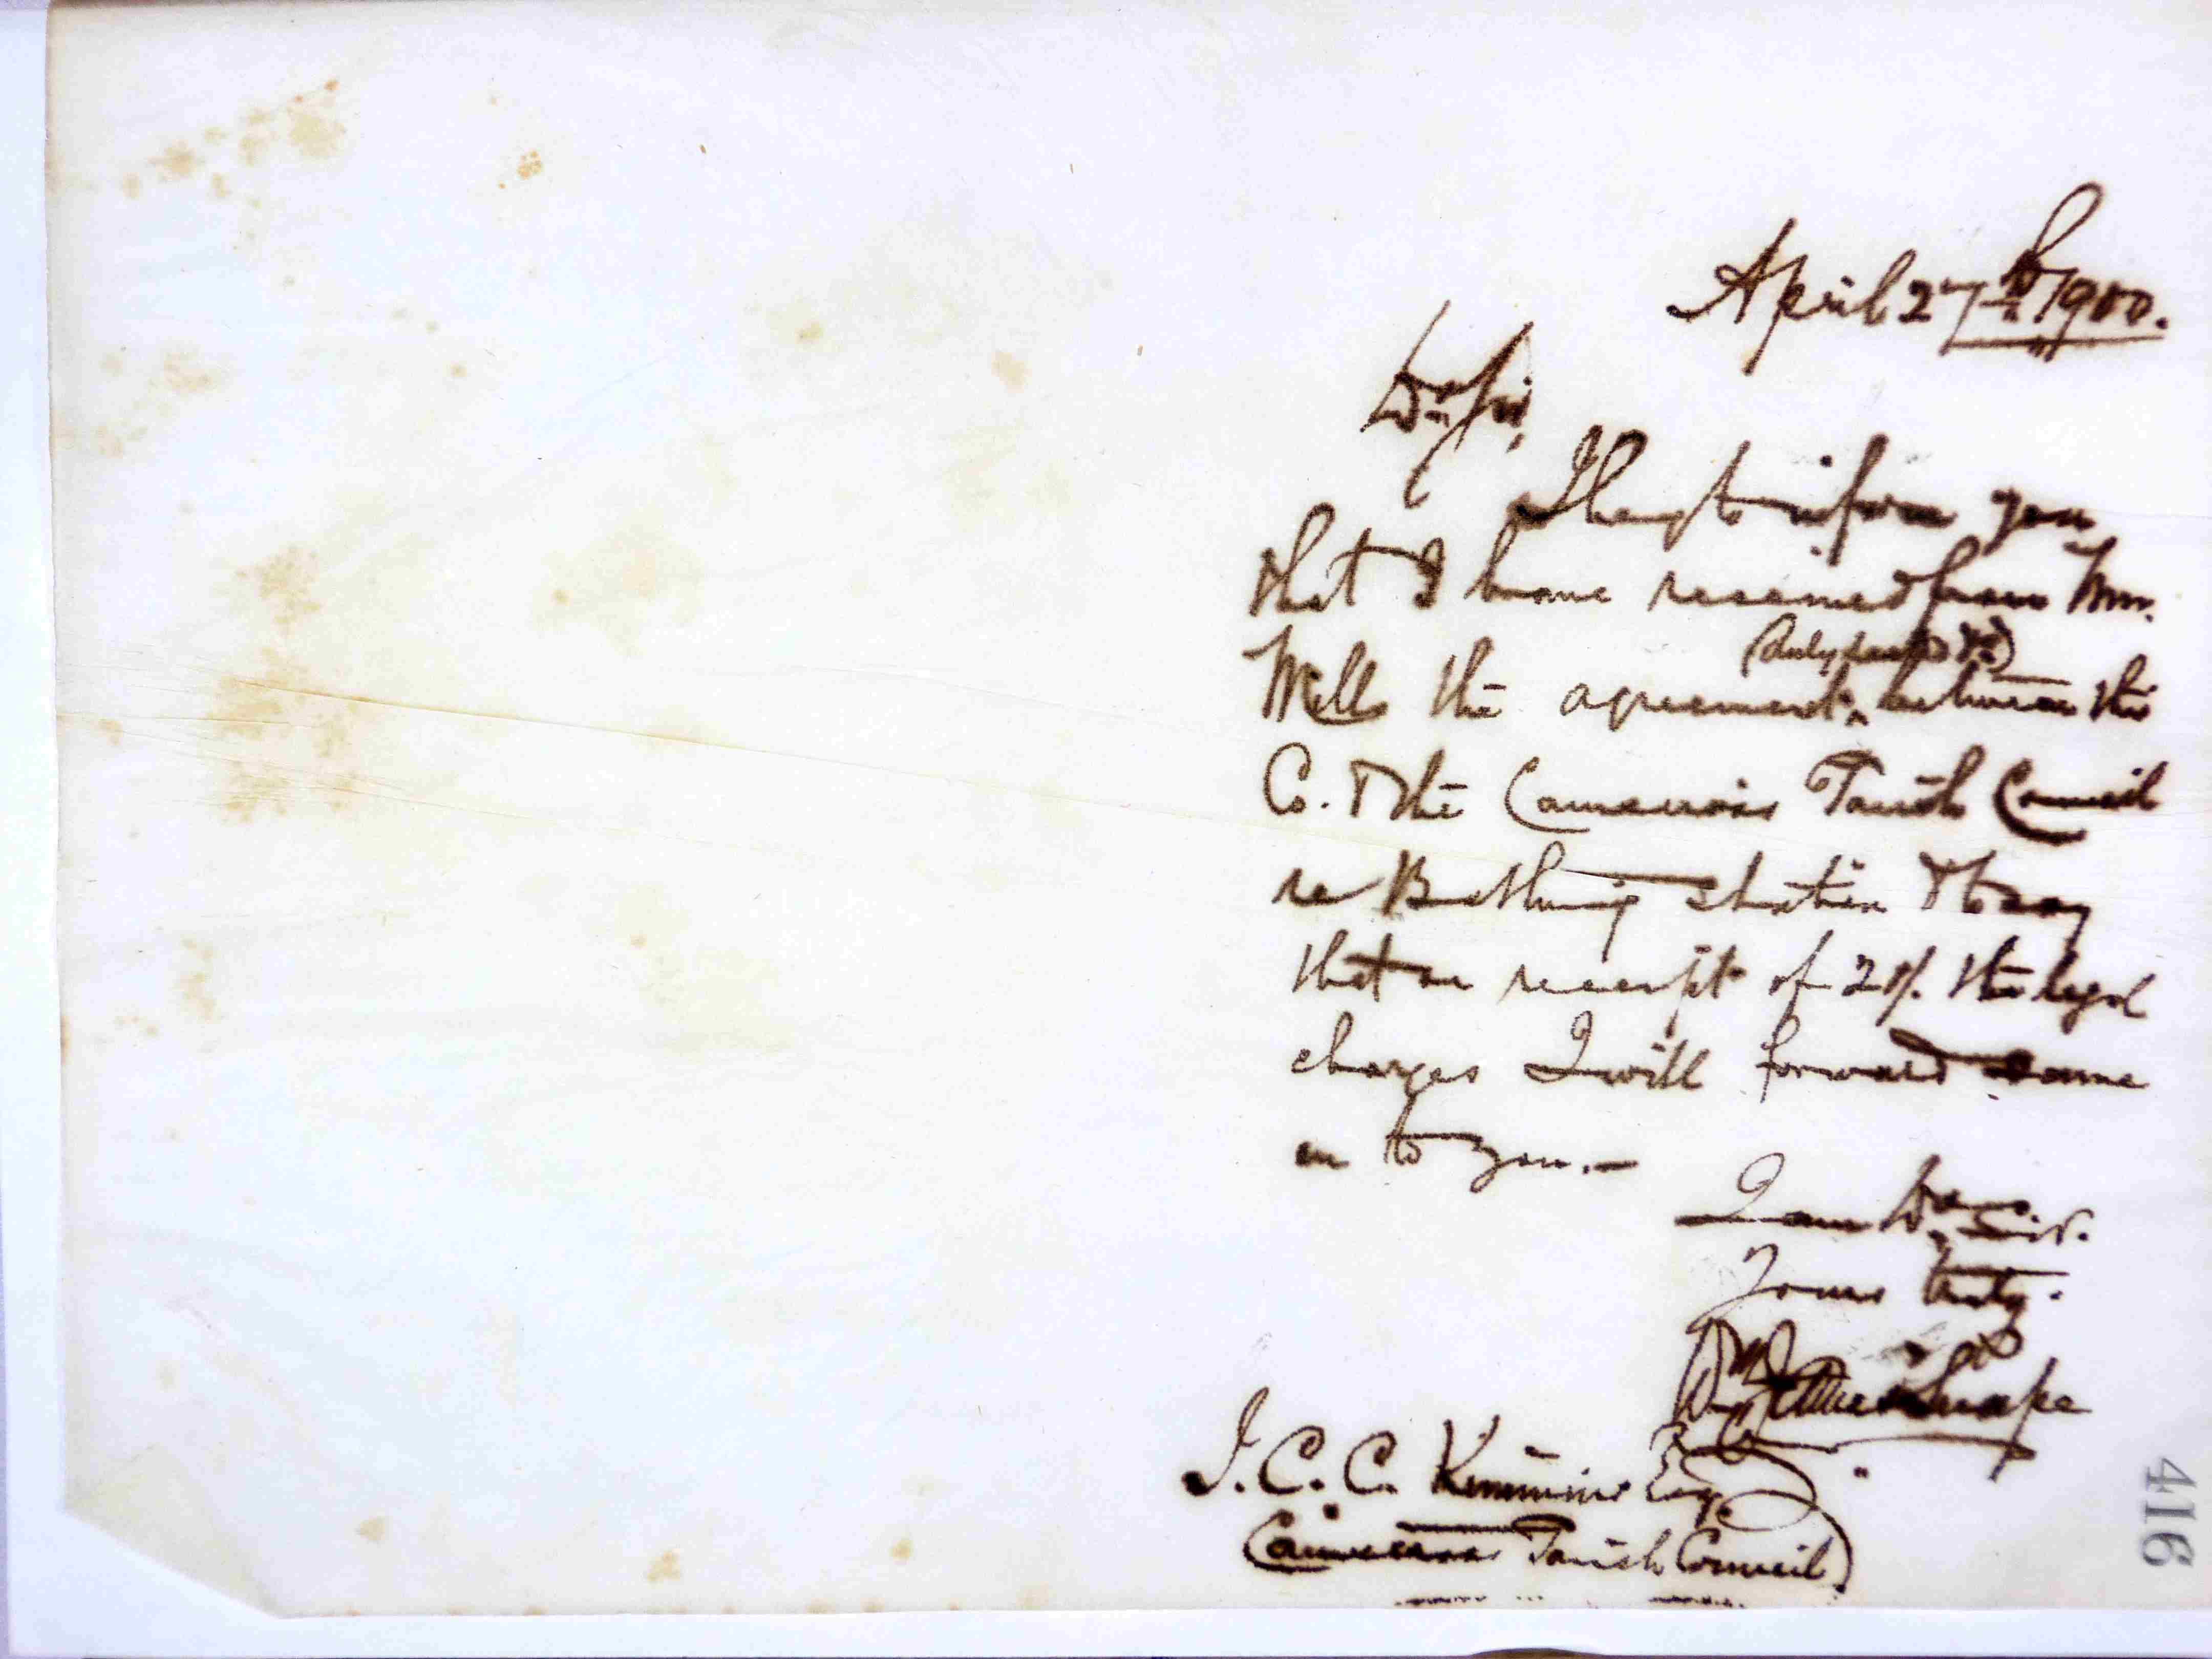 April 27th 1900.
Dr Sir,
I beg to inform you
that I have received from Mr.
Wells the agreement between this
(duly sealed &c)
Co. & the Camerois Parish Council
re Bathing station & to say
that on receipt of 20/. the legal
charges I will forward same
on to you.—
I am Dr Sir.
Yours truly.
J. C. C. Esqr
Parish Council
416